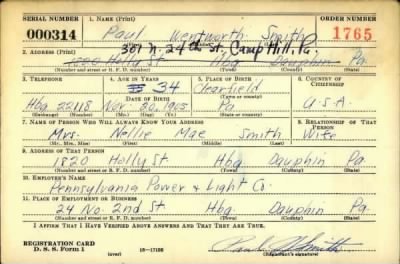 SERIAL NUMBER 1. NAME (Print) ORDER NUMBER
000314 Paul Wentworth Smith 1765
(First) (Middle) (Last)
387 N. 24th St, Camp Hill, Pa.
2. ADDRESS (Print)
1820 Holly St Hbg Dauphin Pa.
(Number and street or R. F. D. number) (Town) (County) (State)
3. TELEPHONE 4. AGE IN YEARS 5. PLACE OF BIRTH 6. COUNTRY OF CITIZENSHIP
34 Clearfield
DATE OF BIRTH (Town or county)
Hbg 22118 Nov. 30, 1905 Pa U.S.A.
(Exchange) (Number) (Mo.) (Day) (Yr.) (State or country)
7. NAME OF PERSON WHO WILL ALWAYS KNOW YOUR ADDRESS 8. RELATIONSHIP OF THAT PERSON
Mrs. Nellie Mae Smith Wife
(Mr., Mrs., Miss) (First) (Middle) (Last)
9. ADDRESS OF THAT PERSON
1820 Holly St Hbg Dauphin Pa.
(Number and street or R. F. D. number) (Town) (County) (State)
10. EMPLOYER'S NAME
Pennsylvania Power & Light Co.
11. PLACE OF EMPLOYMENT OR BUSINESS
24 No. 2nd St Hbg Dauphin Pa.
(Number and street or R. F. D. number) (Town) (County) (State)
I AFFIRM THAT I HAVE VERIFIED ABOVE ANSWERS AND THAT THEY ARE TRUE.
REGISTRATION CARD
D. S. S. Form 1 16—17105 Paul W Smith
(over) (Registrant's signature)